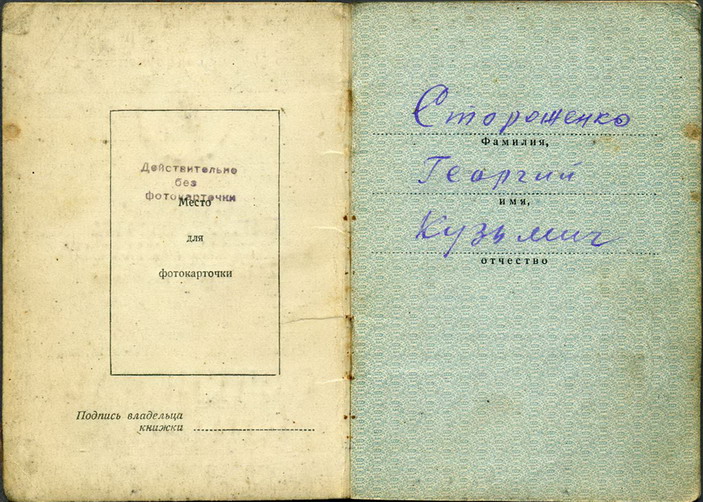 Действительно
без
фотокарточки
Место
для
фотокарточки
Подпись владельца
книжки
Стороженко
Фамилия,
Георгий
имя,
Кузьмич
отчество